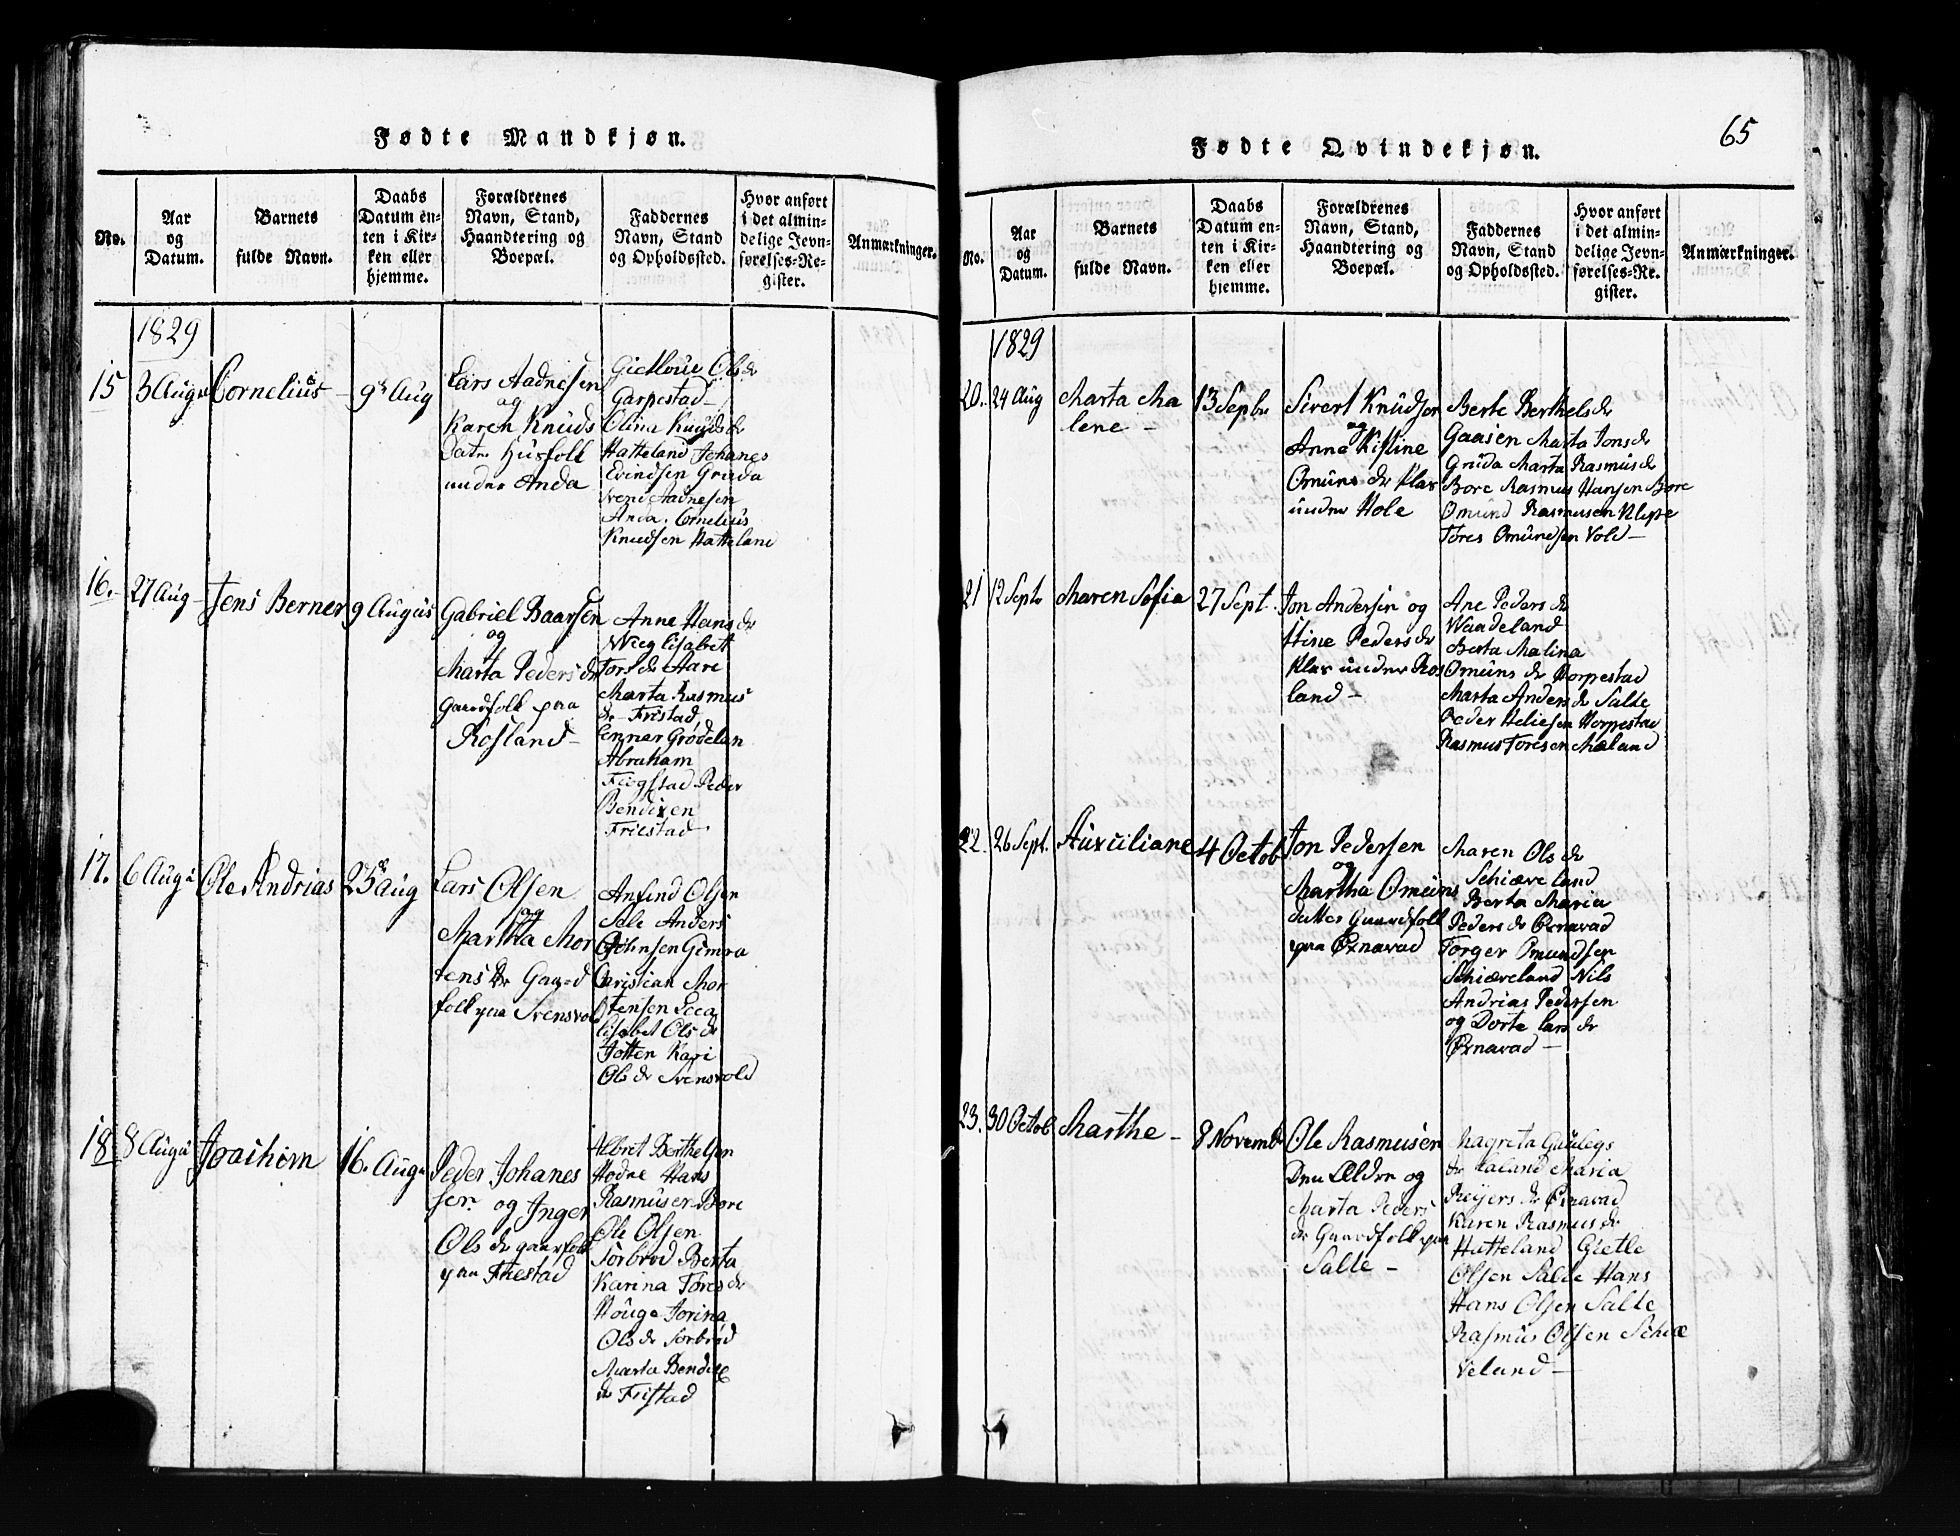 Fødte Mandkjøn.
No.
Aar
og
Datum.
Barnets
fulde Navn.
Daabs
Datum en-
ten i Kir-
ken eller
hjemme.
Forældrenes
Navn, Stand,
Haandtering og
Boepæl.
Faddernes
Navn, Stand
og Opholdssted.
Hvor anført
i det almin-
delige Jevn-
førelses-Re-
gister.
Anmærkninger.
1829
15
3 Aug
Cornelius
9 Aug
Lars Aadnesen
og
Karen Knuds
Datr Husfolk
under Anda
Ols dr
Garpestad
Olina Knuds dr
Hatteland Johanes
Evindsen Gruda
Svend Aadnesen
Anda. Cornelius
Knudsen Hatteland
16.
27 Aug
Jens Berner
9 Augus
Gabriel Baarsen
og
Marta Peders dr
Gaardfolk paa
Rosland
Anne Hans dr
Wiig lisabet
Tors dr Aare
Marta Rasmus
dr Fristad
Enner Grødelan
Abraham
Fiogstad Peder
Bendixen
Friestad
17.
6 Aug
Ole Andrias
23 Aug
Lars Olsen
og
Martha Mor
tens dr Gaard
folk paa Svensvol
Anfind Olsen
Sele Anders
Johnsen Gimra
Christian Mor
tensen
lisabet Ols dr
Jotten Kari
Ols dr Svensvold
18
8 Aug
Joachim
16. Aug
Peder Johanes
sen og Inger
Ols dr gaarfolk
paa Friestad
Albret Berthelsen
Hodne Hans
Rasmusen Bore
Ole Olsen
Sørbrød Berta
Karina Tores dr
Houge Jorina
Ols dr Sørbrød
Marta Bendix
dr Fristad
65
Fødte Qvindekjøn.
No.
Aar
og
Datum.
Barnets
fulde Navn.
Daabs
Datum en-
ten i Kir-
ken eller
hjemme.
Forældrenes
Navn, Stand,
Haandtering og
Boepæl.
Faddernes
Navn, Stand
og Opholdssted.
Hvor anført
i det almin-
delige Jevn-
førelses-Re-
gister.
Anmærkninger.
1829
20.
24 Aug
Marta Ma
lene
13 Septbr
Sivert Knudsen
og
Anna Kistine
Omuns dr Plas
under Hole
Berte Berthels dr
Gaasen Marta Jons dr
Gruda Marta Rasmus dr
Bore Rasmus Hansen Bore
Omund Rasmusen Kleppe
Tores Omundsen Vold
21
12 Septr
Maren Sofia
27 Sept.
Jon Andersen og
Stine Peders dr
Plas under Ros
land
Ane Peders dr
Waadeland
Berta Malina
Omuns dr Horpestad
Marta Anders dr Salte
Peder Heliesen Horpestad
Rasmus Toresen Mæland
22.
26 Sept.
Auxciliane
4 Octob
Jon Pedersen
og
Martha Omuns
datter Gaardfolk
paa Øxnavad
Maren Ols dr
Schiæveland
Berta Maria
Peders dr Øxnavad
Torger Omundsen
Schiæveland Nils
Andrias Pedersen
og Dorte lars dr
Øxnavad
23.
30 Octob
Marthe
8 Novemb
Ole Rasmusen
Den Ældre og
Marta Peders
dr Gaardfolk paa
Salte
Magreta Gunlegs
dr Maria
Reijers dr Øxnavad
Karen Rasmus dr
Hatteland Gietle
Olsen Salte Hans
Hans Olsen Salte
Rasmus Olsen Schiæ
veland